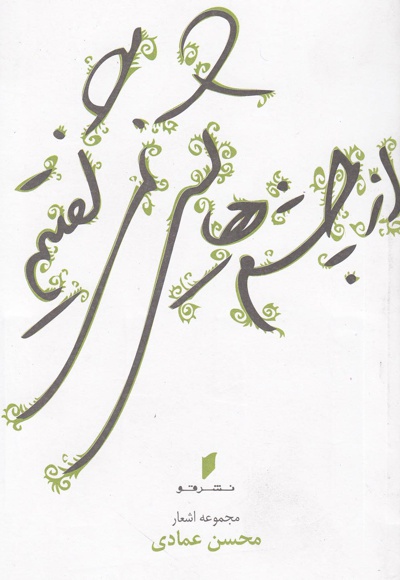 از چشم هایش نمی گفتیم
نشر قو
مجموعه اشعار
محسن عمادی